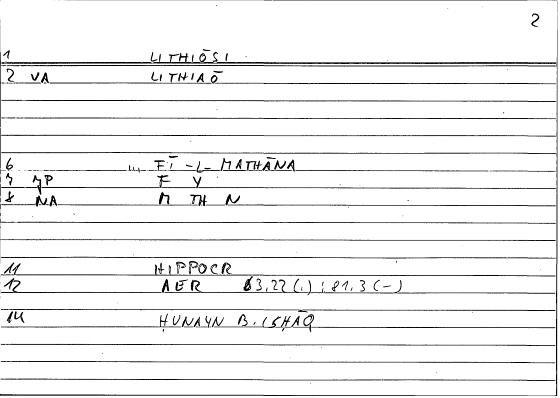 2
1 LITHIŌSI
2 VA LITHIAŌ
6 ... FĪ -L- MATHĀNA
7 YP F Y
8 NA M TH N
11 HIPPOCR
12 AER 63,22 (.) ; 81.3 (-)
14 ḤUNAYN B. ISḤĀQ